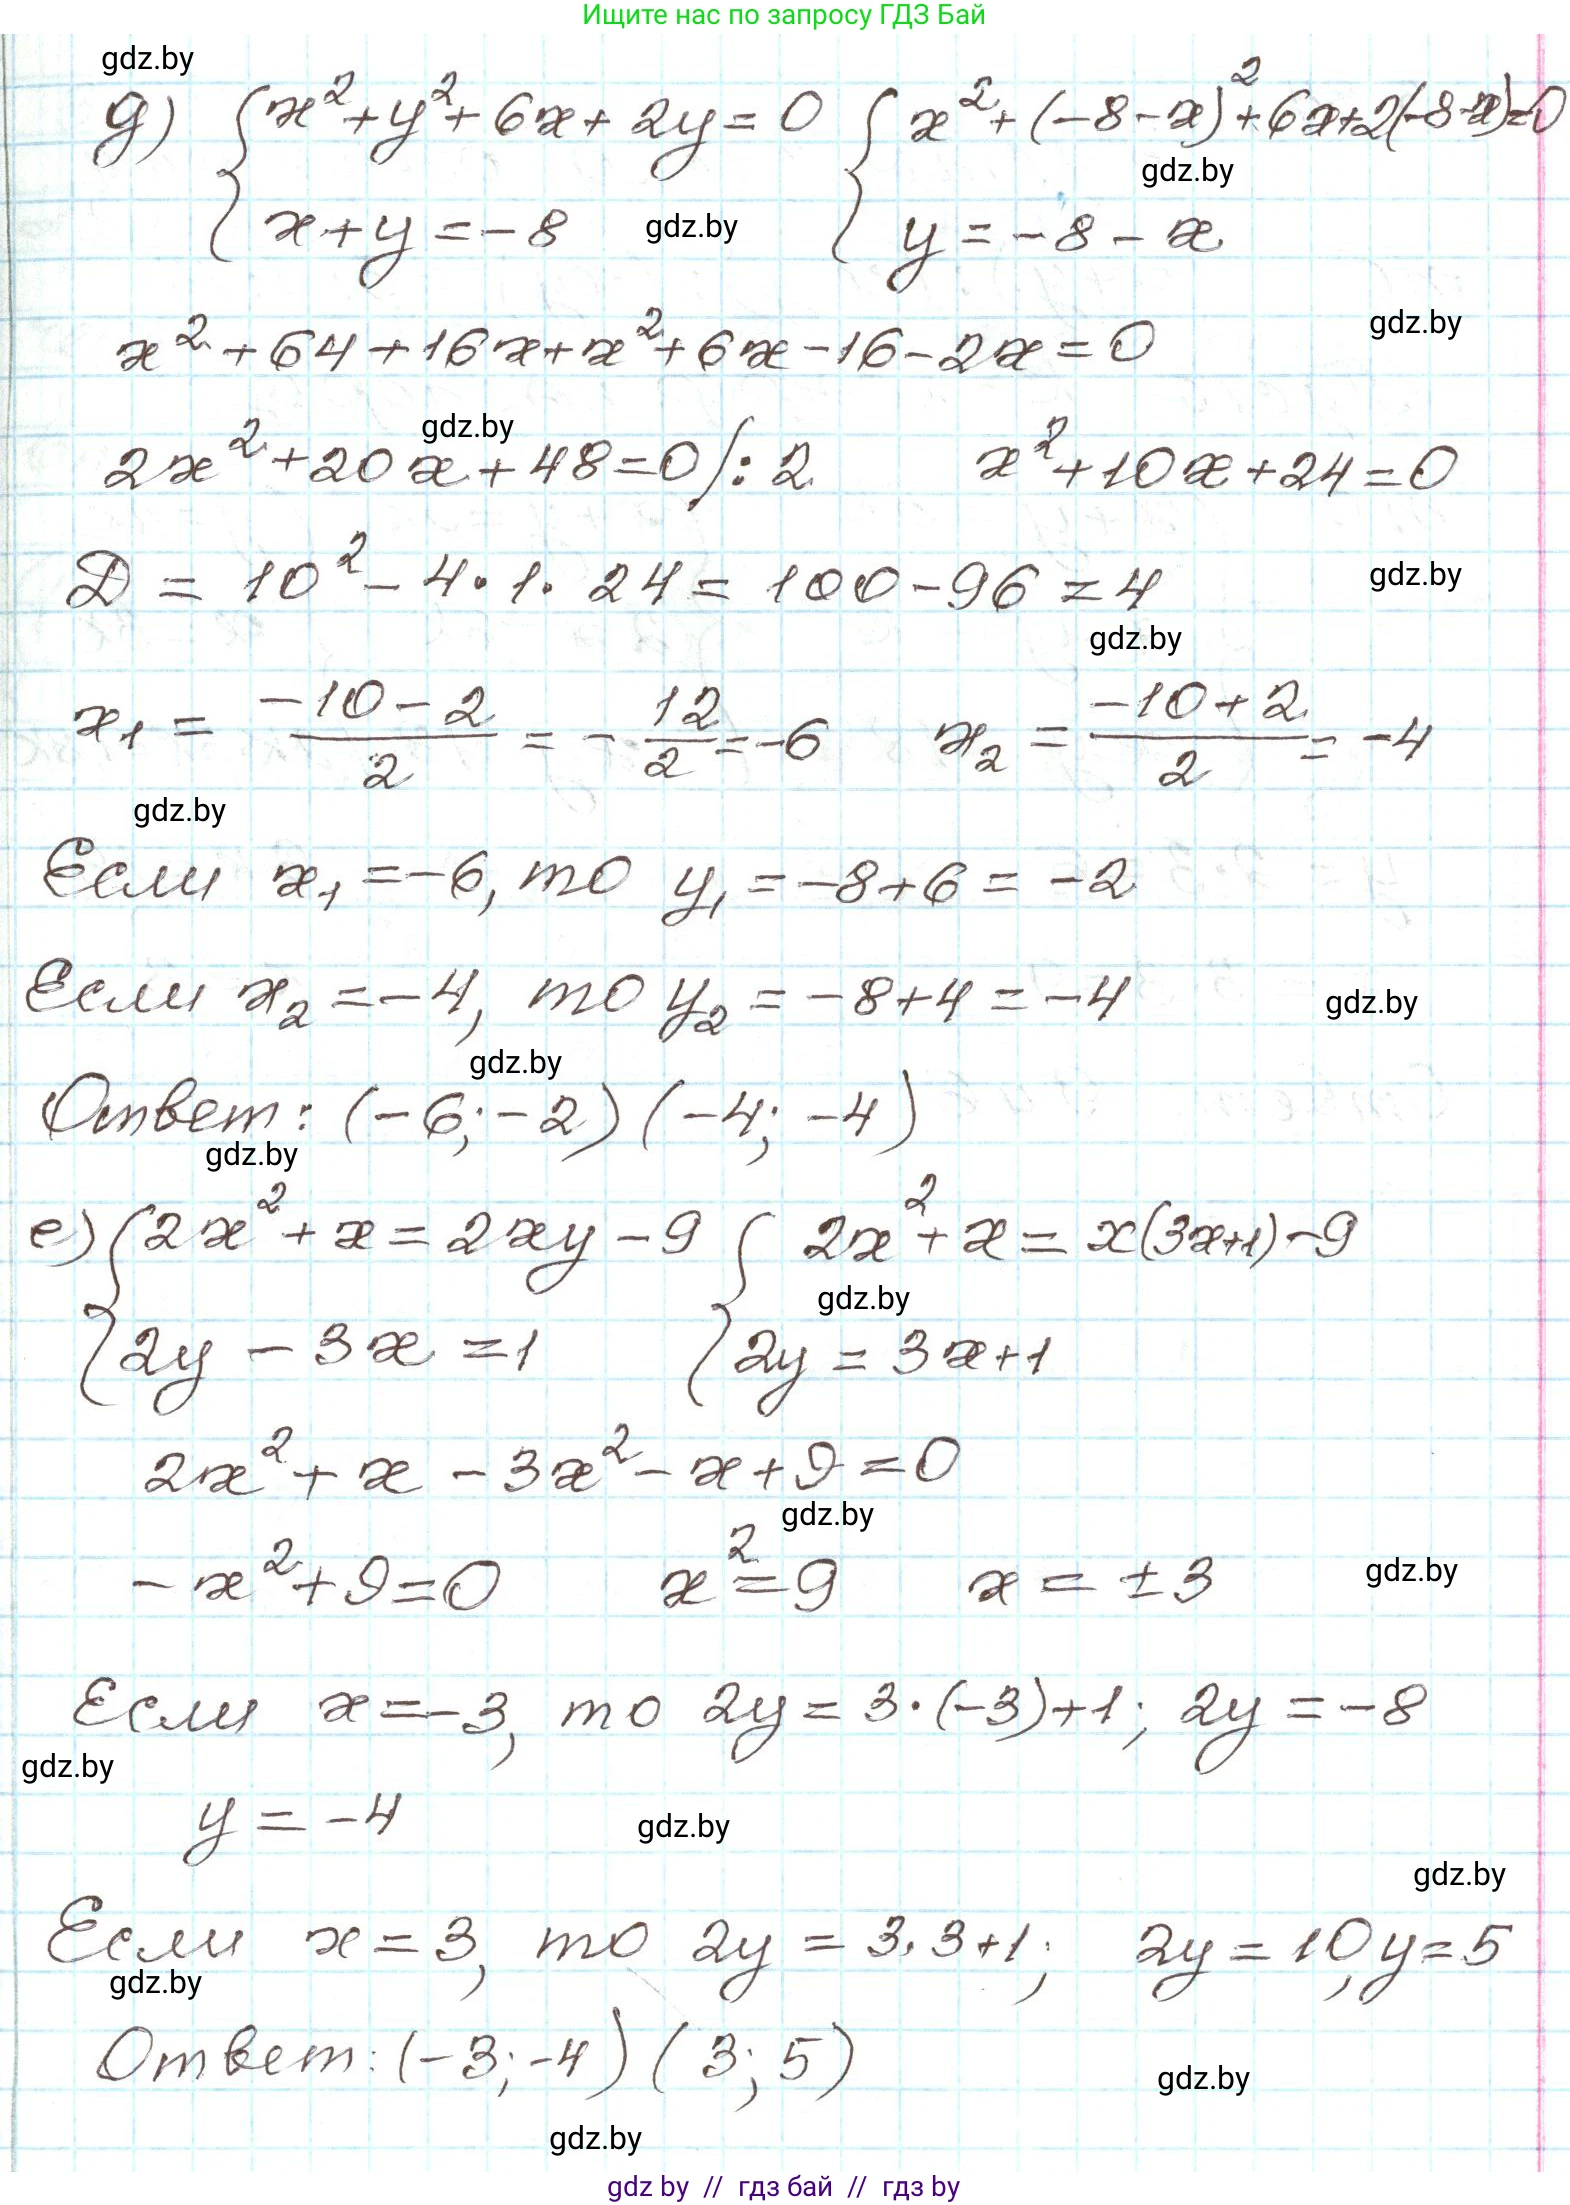 Ищите нас по запросу ГДЗ Бай
gdz.by
д) { x² + y² + 6x + 2y = 0 { x² + (-8 - x)² + 6x + 2(-8 - x) = 0
gdz.by
x + y = -8 gdz.by y = -8 - x
gdz.by
x² + 64 + 16x + x² + 6x - 16 - 2x = 0
gdz.by
2x² + 20x + 48 = 0 |: 2 x² + 10x + 24 = 0
Д = 10² - 4 · 1 · 24 = 100 - 96 = 4 gdz.by
gdz.by
x₁ = (-10 - 2)/2 = - 12/2 = -6 x₂ = (-10 + 2)/2 = -4
gdz.by
Если x₁ = -6, то y₁ = -8 + 6 = -2
Если x₂ = -4, то y₂ = -8 + 4 = -4 gdz.by
gdz.by
Ответ: (-6; -2) (-4; -4)
gdz.by
е) { 2x² + x = 2xy - 9 { 2x² + x = x(3x+1) - 9
gdz.by
2y - 3x = 1 2y = 3x + 1
2x² + x - 3x² - x + 9 = 0
gdz.by
-x² + 9 = 0 x² = 9 x = ±3 gdz.by
Если x = -3, то 2y = 3 · (-3) + 1; 2y = -8
gdz.by
y = -4 gdz.by
gdz.by
Если x = 3, то 2y = 3 · 3 + 1; 2y = 10, y = 5
gdz.by
Ответ: (-3; -4) (3; 5)
gdz.by
gdz.by
gdz by // гдз бай // гдз by